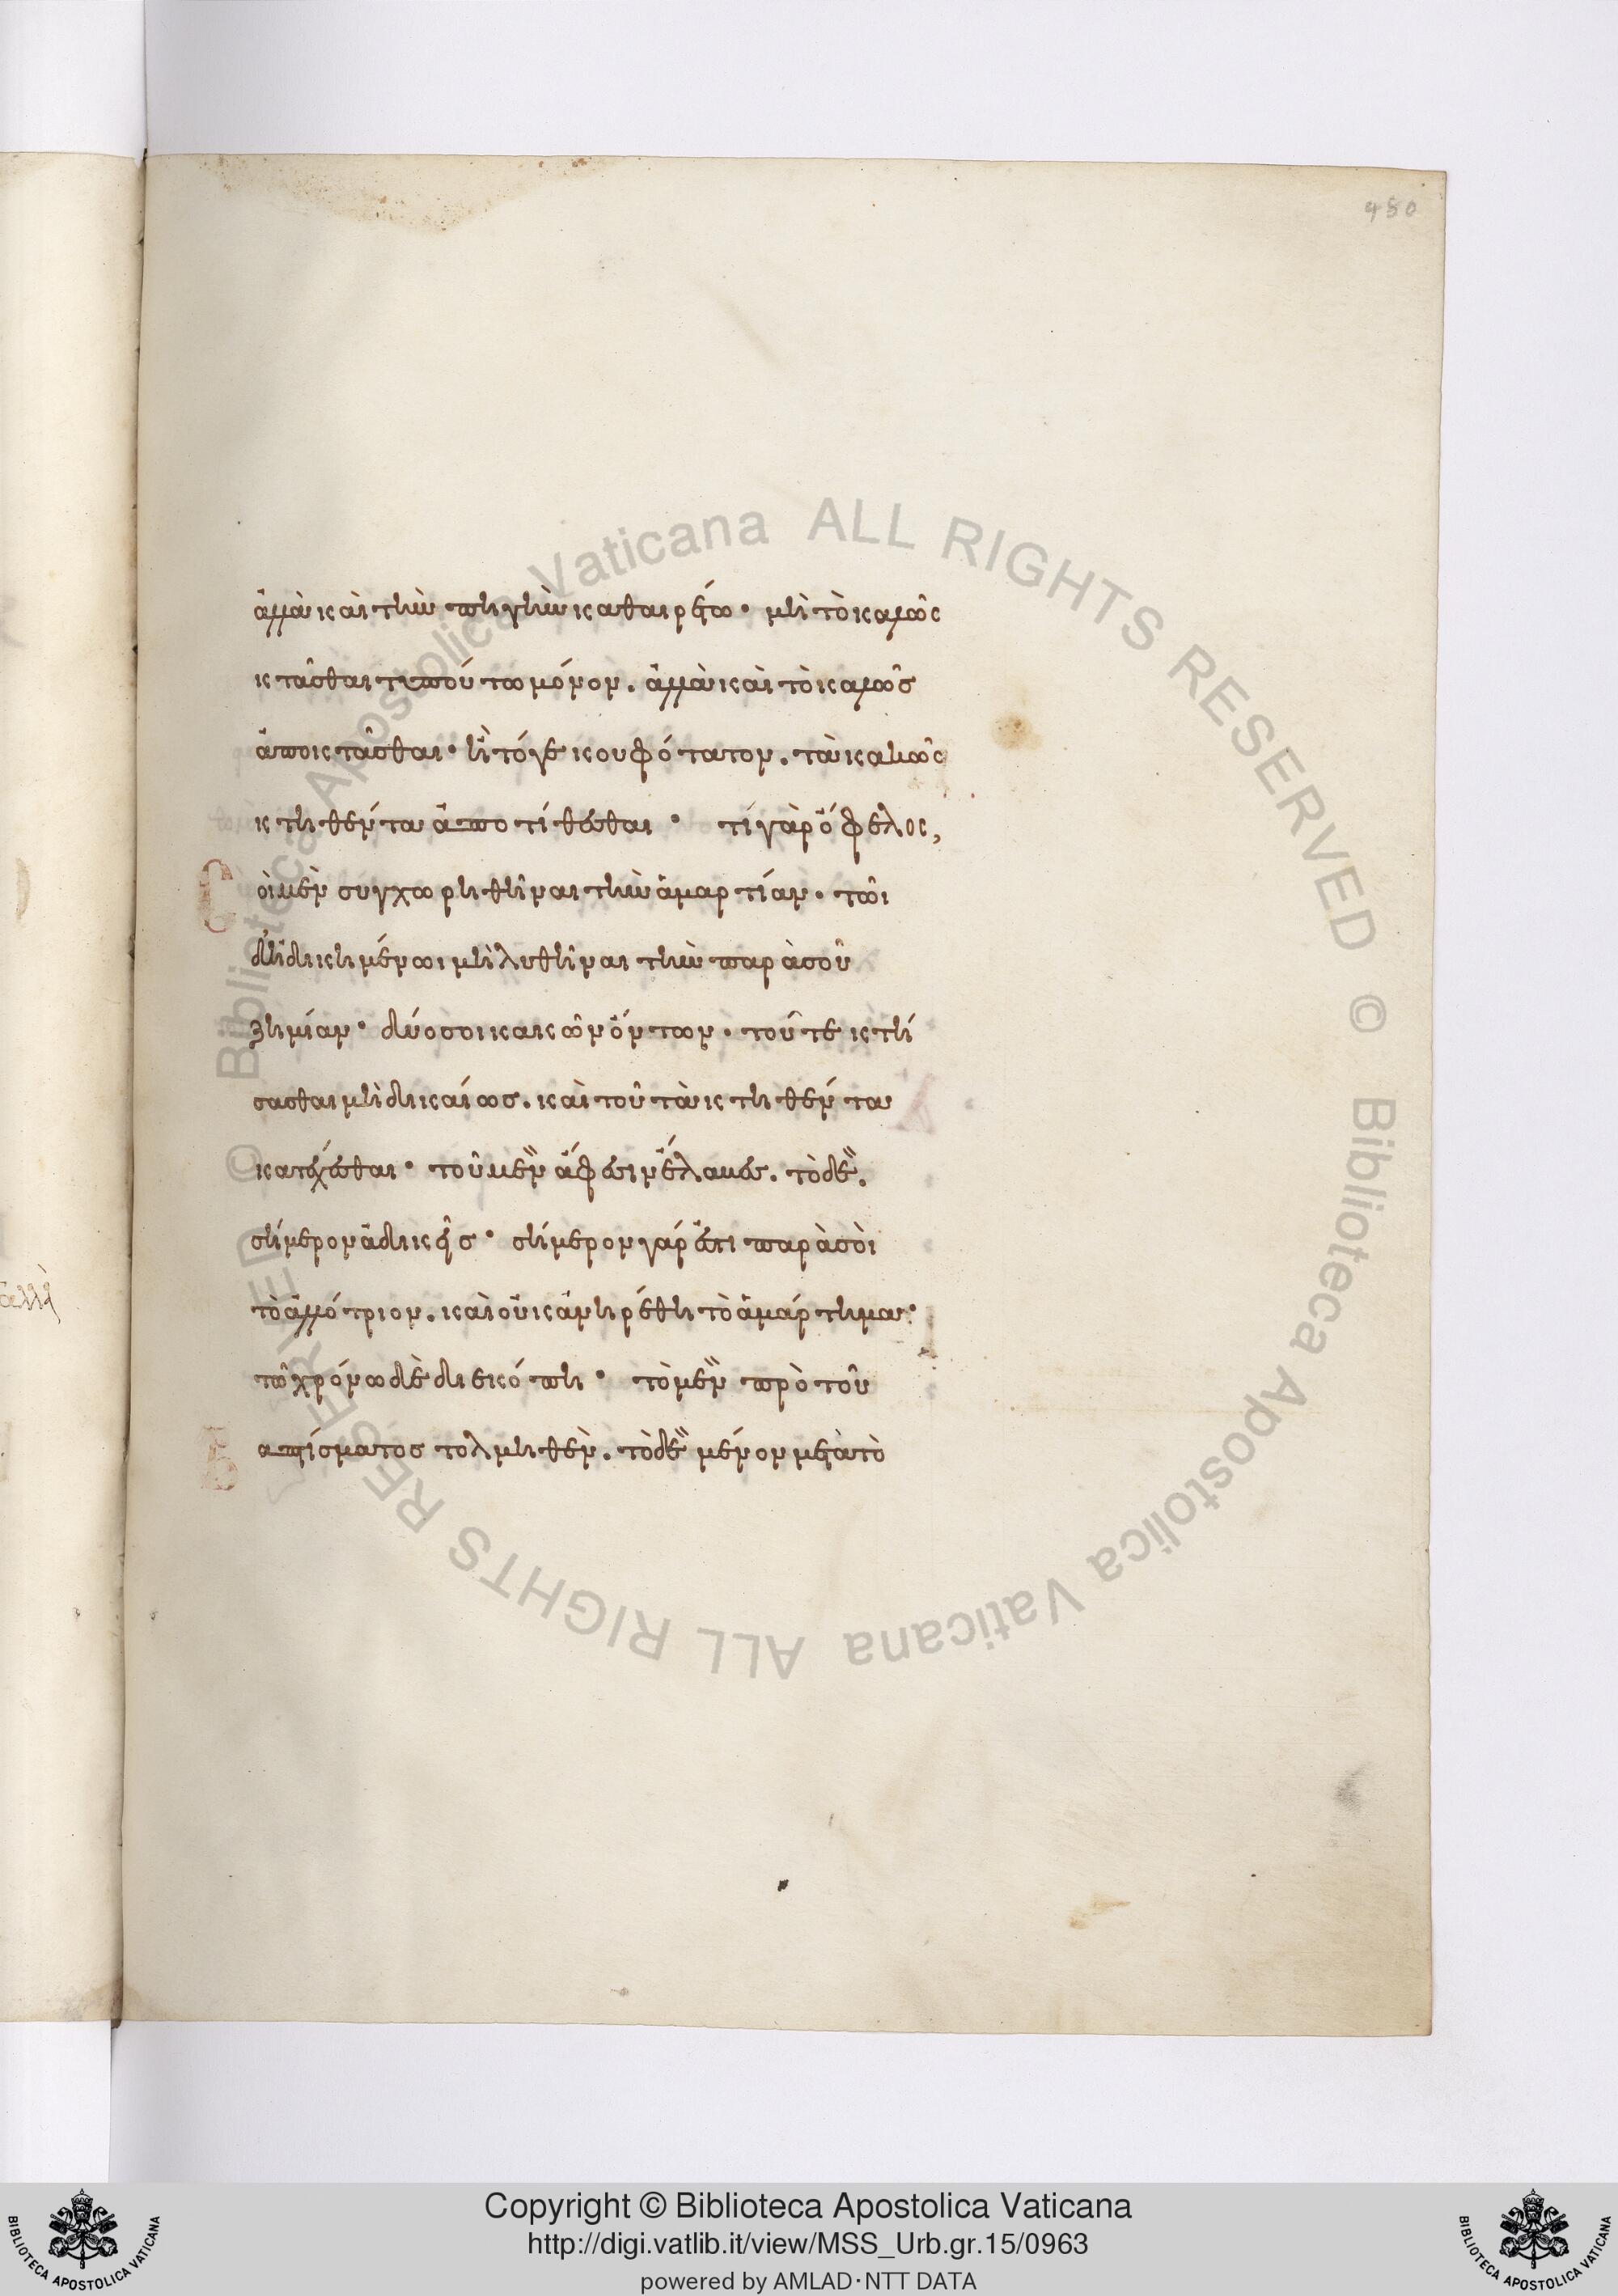 480
ἀλλὰ καὶ τὴν πηγὴν καθαιρέτω· μὴ τὸ καλῶς
κτᾶσθαι τυπούτω μόνον. ἀλλὰ καὶ τὸ καλῶς
ἀποκτᾶσθαι· ἢ τό γε κουφότατον. τὰ κακῶς
κτηθέντα ἀποτίθεσθαι· τί γὰρ ὄφελος,
σοὶ μὲν συγχωρηθῆναι τὴν ἁμαρτίαν. τῶι
δ' ἠδικημένωι μὴ λυθῆναι τὴν παρὰ σοῦ
ζημίαν· δύο σοι κακῶν ὄντων. τοῦ τε κτή
σασθαι μὴ δικαίως. καὶ τοῦ τὰ κτηθέντα
κατέχεσθαι· τοῦ μὲν ἄφεσιν ἔλαβες. τὸ δὲ.
σήμερον ἀδικεῖς· σήμερον γάρ ἐστι παρὰ σοὶ
τὸ ἀλλότριον. καὶ οὐκ ἀνηρέθη τὸ ἁμάρτημα·
τῶ χρόνω δὲ διεκόπη· τὸ μὲν πρὸ τοῦ
βαπτίσματος τολμηθὲν. τὸ δὲ μένον μετὰ τὸ
Copyright © Biblioteca Apostolica Vaticana
http://digi.vatlib.it/view/MSS_Urb.gr.15/0963
powered by AMLAD·NTT DATA
BIBLIOTECA APOSTOLICA VATICANA
BIBLIOTECA APOSTOLICA VATICANA
© Biblioteca Apostolica Vaticana ALL RIGHTS RESERVED
© Biblioteca Apostolica Vaticana ALL RIGHTS RESERVED